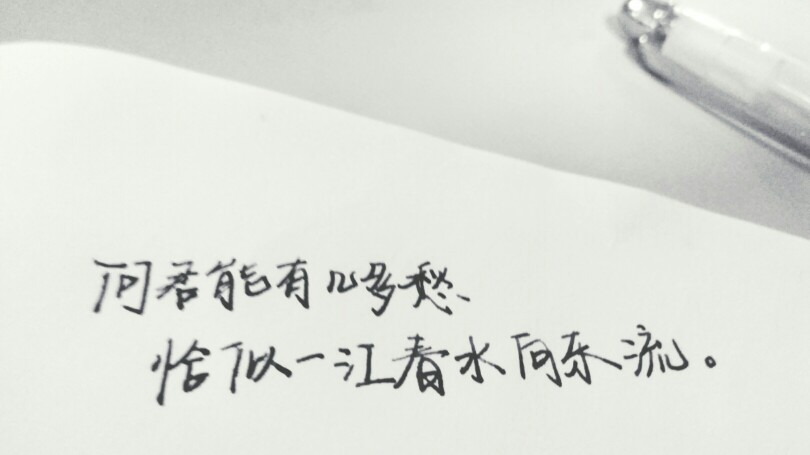 问君能有几多愁、
恰似一江春水向东流。